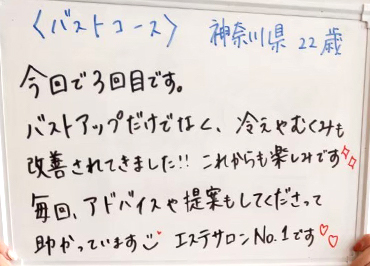 〈バストコース〉 神奈川県 22歳
今回で3回目です。
バストアップだけでなく、冷えやむくみも
改善されてきました!! これからも楽しみです
毎回、アドバイスや提案もしてくださって
助かっています エステサロンNo.1です♡♡